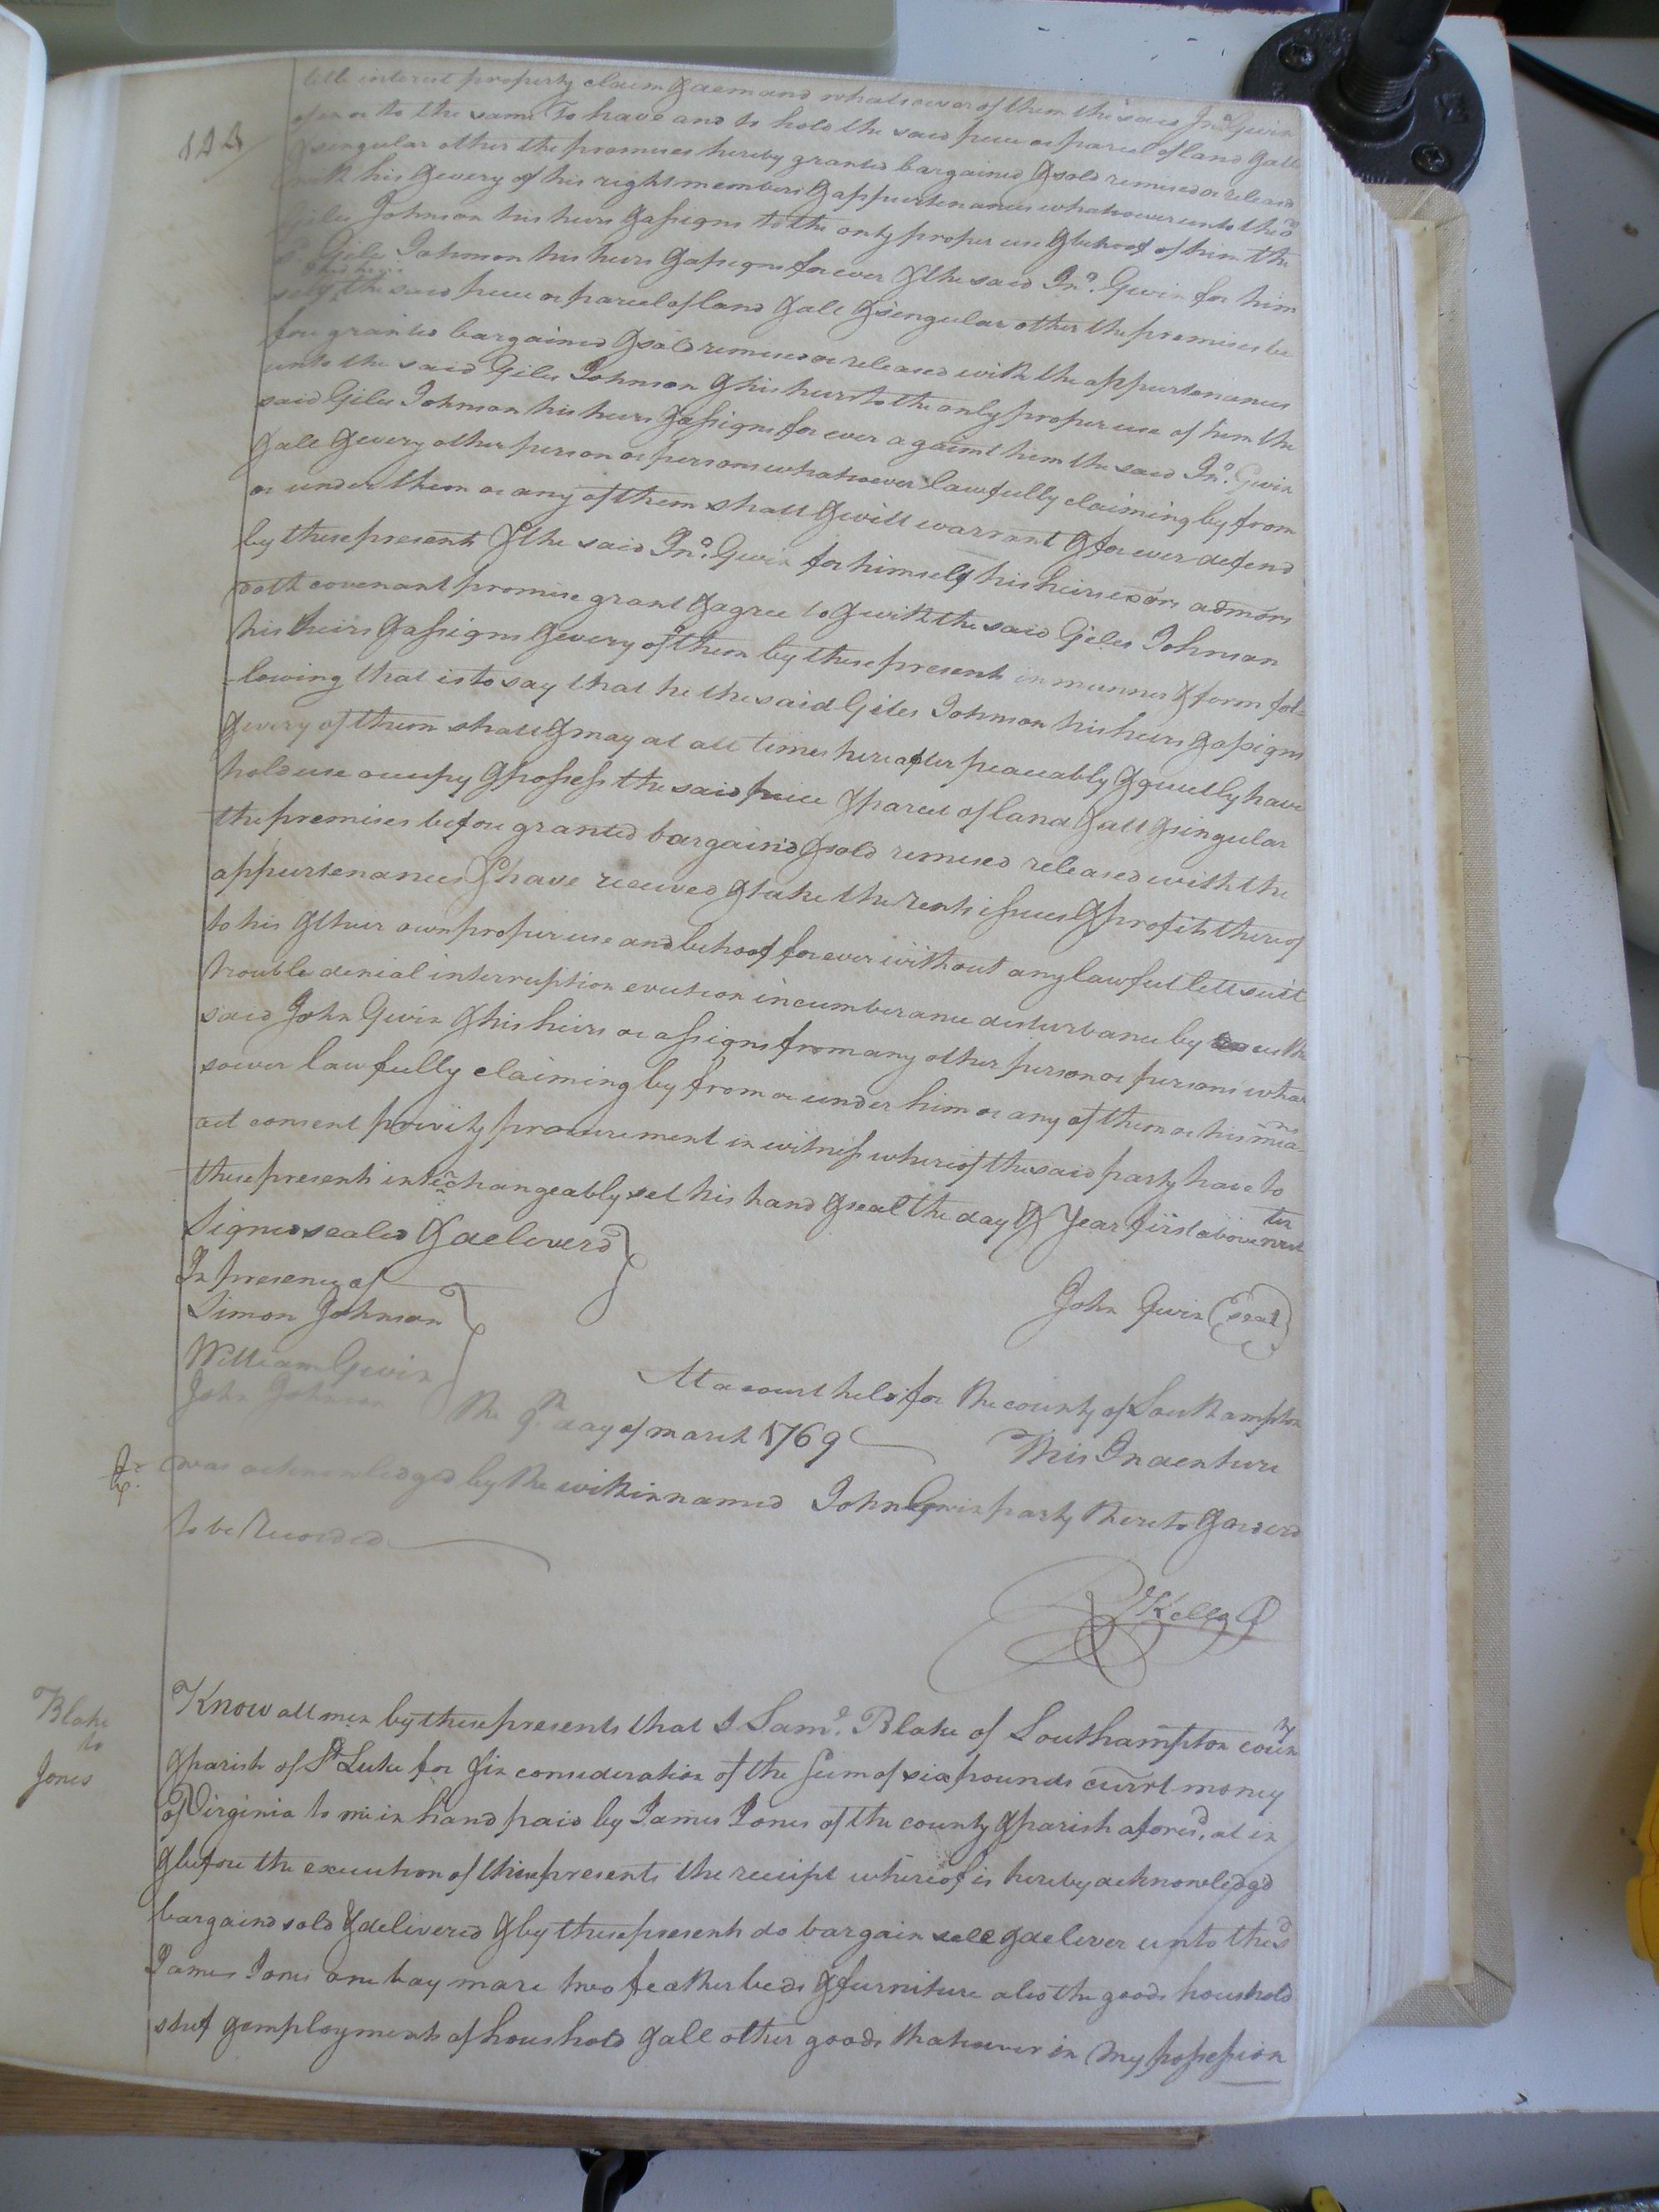 124
title interest property claim & demand whatsoever of them the said Jno. Gwin
of in or to the same To have and to hold the said piece or parcel of land & all
& singular other the premises hereby granted bargained & sold remised or released
with his & every of his right members & appurtenances whatsoever unto the sd
Giles Johnson his heirs & assigns to the only proper use & behoof of him the
sd. Giles Johnson his heirs & assigns for ever & the said Jno. Gwin for him
self & his heirs the said piece or parcel of land & all & singular other the premises be
fore granted bargained & sold remised or released with the appurtenances
unto the said Giles Johnson & his heirs to the only proper use of him the
said Giles Johnson his heirs & assigns for ever against them the said Jno. Gwin
& all & every other person or persons whatsoever lawfully claiming by from
or under them or any of them shall & will warrant & for ever defend
by these present & the said Jno. Gwin for himself his heirs exors admors
doth covenant promise grant & agree to & with the said Giles Johnson
his heirs & assigns & every of them by these present in manner & form fol=
-lowing that is to say that he the said Giles Johnson his heirs & assigns
& every of them shall & may at all times hereafter peaceably & quietly have
hold use occupy & possess the said piece & parcel of land & all & singular
the premises before granted bargain'd & sold remised released with the
appurtenances & have received & take the rents issues & profits thereof
to his & their own proper use and behoof for ever without any lawful lett suit
trouble denial interruption eviction incumberance disturbance by us the
said John Gwin & his heirs or assigns from any other person or persons what
soever lawfully claiming by from or under him or any of them or his mea-ns
act consent privity procurement in witness whereof the said party have to
these present interchangeably set his hand & seal the day & Year first above writ ten
Signed sealed & deliverd
In presency of
Simon Johnson
John Gwin (seal)
William Gwin
John Johnson
At a court held for the county of Southampton
the 9th. day of march 1769
This Indenture
was acknowledged by the within named John Gwin party thereto & orderd
to be Recorded
R Kello
Blake
to
Jones
Know all men by these presents that I Saml. Blake of Southampton county
& parish of St Luke for & in consideration of the sum of six pounds currt money
of Virginia to me in hand paid by James Jones of the county & parish aforesd, at in
& before the execution of these presents the receipt whereof is hereby acknowledg'd
bargaind sold & delivered & by these presents do bargain sell & deliver unto the sd
James Jones one bay mare two feather beds & furniture also the goods household
stuf & employments of houshold & all other goods thatsoever in my possession